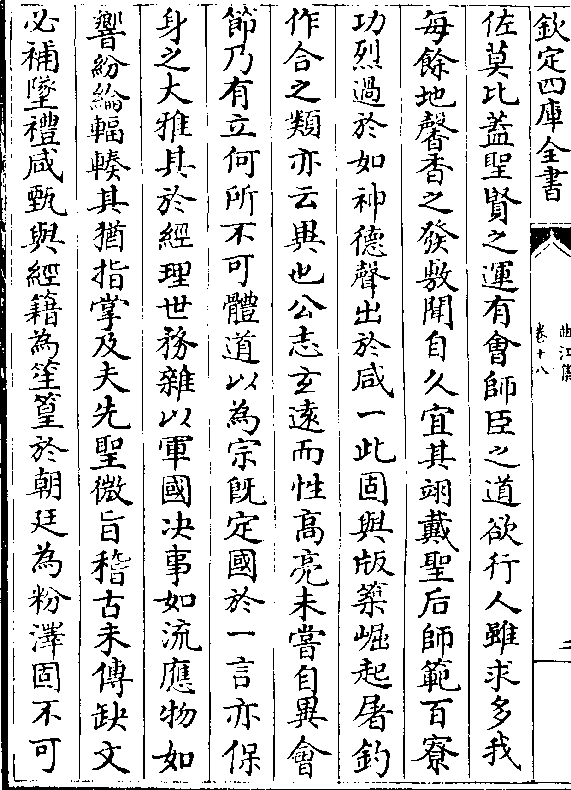 欽定四庫全書
曲江集
卷十八
二
佐莫比蓋聖賢之運有會師臣之道欲行人雖求多我
每餘地馨香之發敷聞自久宜其翊戴聖后師範百寮
功烈過於如神德聲出於咸一此固與版築崛起屠釣
作合之類亦云異也公志玄遠而性高亮未嘗自異會
節乃有立何所不可體道以為宗旣定國於一言亦保
身之大雅其於經理世務雜以軍國决事如流應物如
響紛綸輻輳其猶指掌及夫先聖微旨稽古未傳缺文
必補墜禮咸甄與經籍為笙篁於朝廷為粉澤固不可